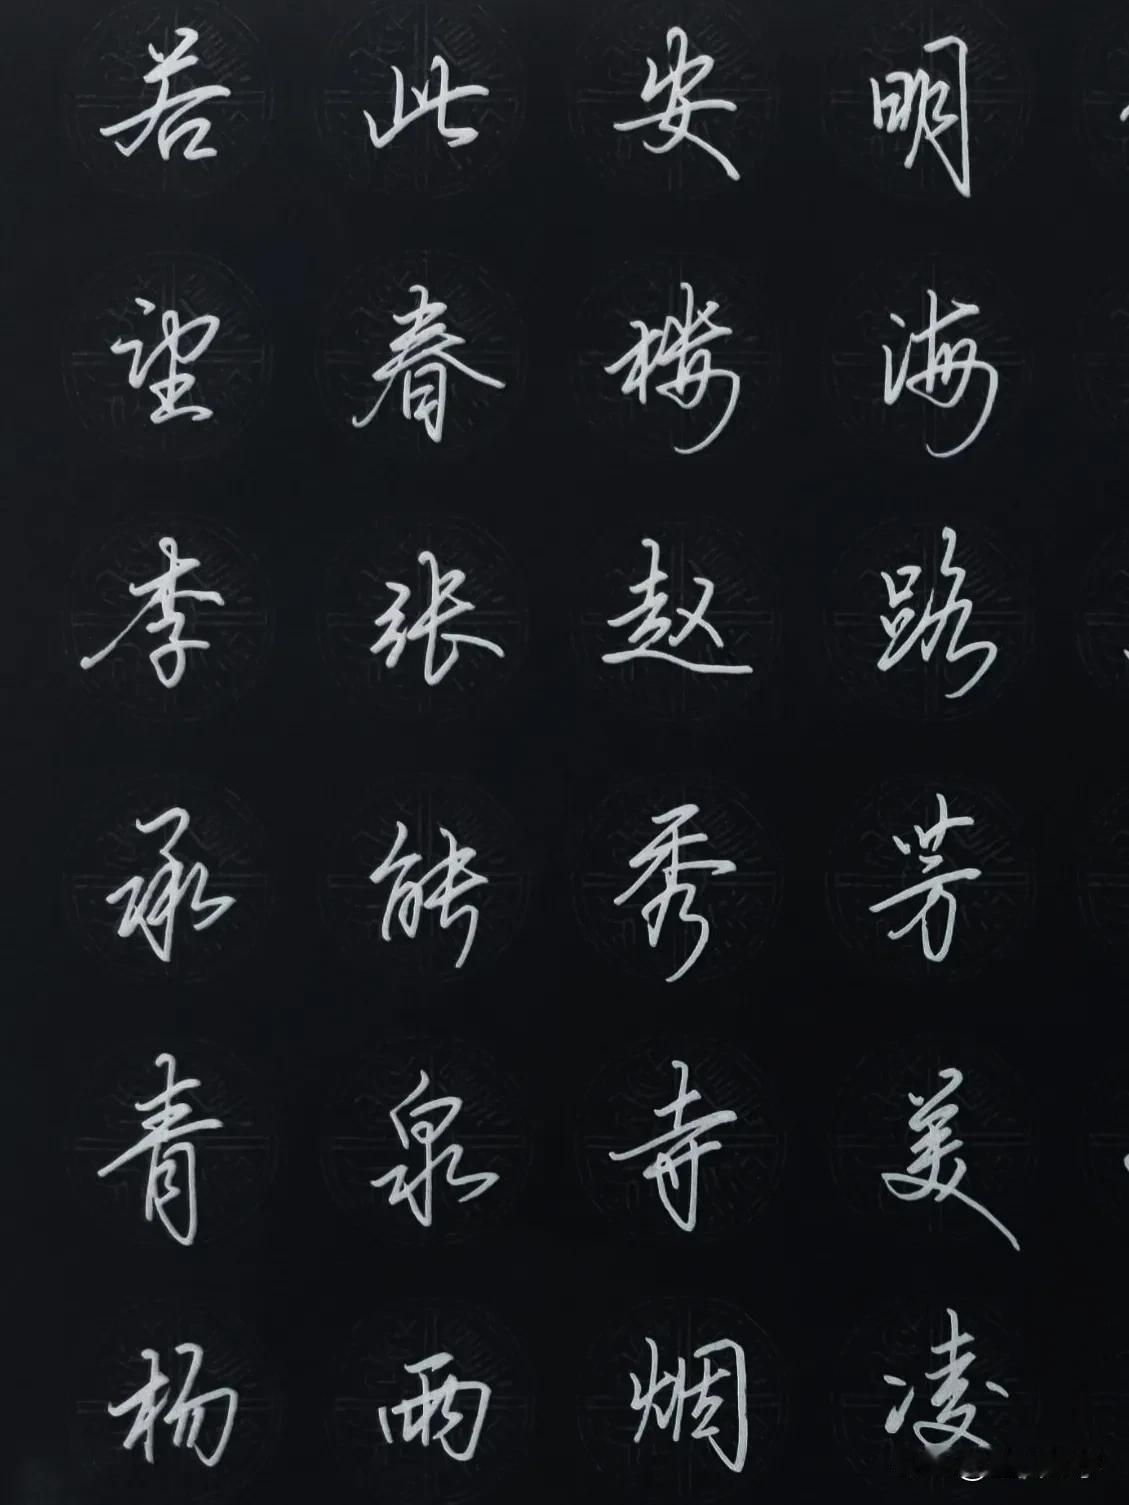 若此安明
望春楼海
李张赵路
承能秀芳
青泉寺美
杨雨烟凌